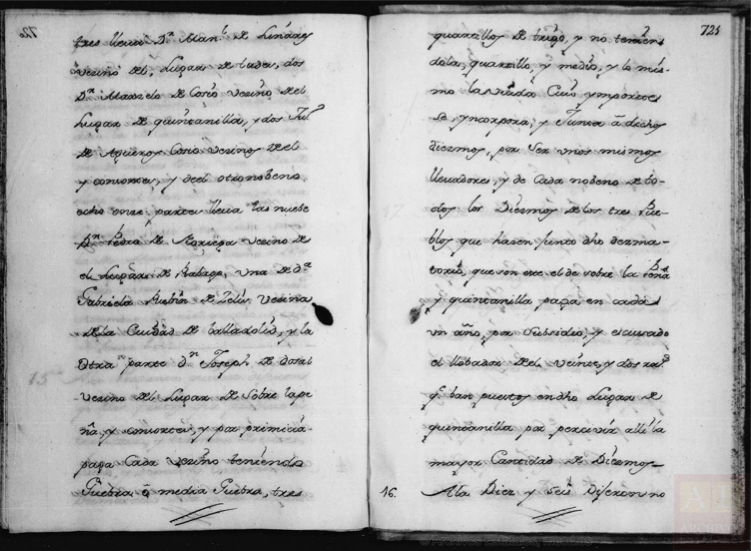 720
tres lleva Dn Manl de Linares
vezino del Lugar de Luder, dos
Dn Marzelo de Cosio vezino del
Lugar de quintanilla, y dos Jul
de Agueros Cosio vezinos del
y consortes, y deel otro nobeno
ocho onze partes lleva las nuebe
Dn Pedro de Noriega vezino de
el Lugar de Rabago, una de Da
Gabriela Rubin de Zelis vezina
de la Ciudad de balladolid, y la
otra parte dn Joseph de
vezino del Lugar de Sobre lape
ña y consortes, y por primicia
paga Cada vezino teniendo
Guebra o media Guebra, tres
721
quartillos de trigo, y no tenien
dola, quartillo, y medio, y lo mis-
mo la viuda Cuio ymporte
se yncorpora, y Junta a dichos
diezmos, por Ser unos mismos
llevadores, y de Cada nobeno de to-
dos los Diezmos de los tres Pue-
blos que hasen Junto dho dezma-
torio, que son este el de sobre la Peña
y quintanilla paga en cada
un año, por Subsidio, y escusado
el llebador del, veinte, y dos rs
q ban puestos en dho Lugar de
quintanilla por percivir alli la
mayor Cantidad de Diezmos
16. A la Diez y Seis Dijeron no